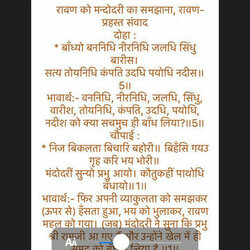 रावण को मन्दोदरी का समझाना, रावण-
प्रहस्त संवाद
दोहा :
* बाँध्यो बननिधि नीरनिधि जलधि सिंधु
बारीस।
सत्य तोयनिधि कंपति उदधि पयोधि नदीस॥
5॥
भावार्थ:- वननिधि, नीरनिधि, जलधि, सिंधु,
वारीश, तोयनिधि, कंपति, उदधि, पयोधि,
नदीश को क्या सचमुच ही बाँध लिया?॥5॥
चौपाई :
* निज बिकलता बिचारि बहोरी॥ बिहँसि गयउ
गृह करि भय भोरी॥
मंदोदरीं सुन्यो प्रभु आयो। कौतुकहीं पाथोधि
बँधायो॥1॥
भावार्थ:- फिर अपनी व्याकुलता को समझकर
(ऊपर से) हँसता हुआ, भय को भुलाकर, रावण
महल को गया। (जब) मंदोदरी ने सुना कि प्रभु
श्री रामजी आ गए और उन्होंने खेल में ही